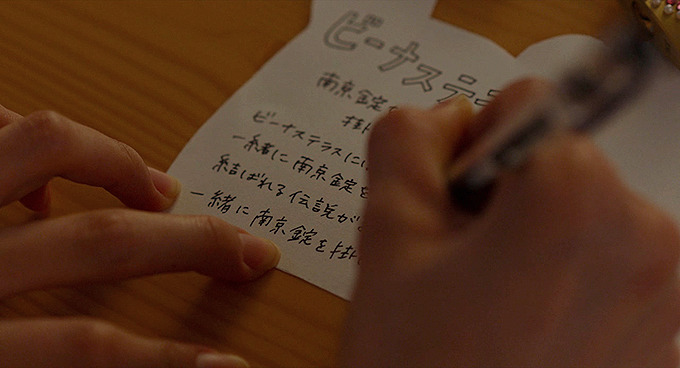 ビーナステラ
南京錠
掛
ビーナステラスに
一緒に南京錠を
結ばれる伝説が
一緒に南京錠を掛